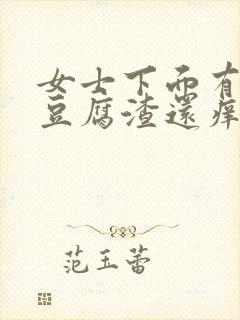 女士下面有
豆腐渣還痒
范玉蕾